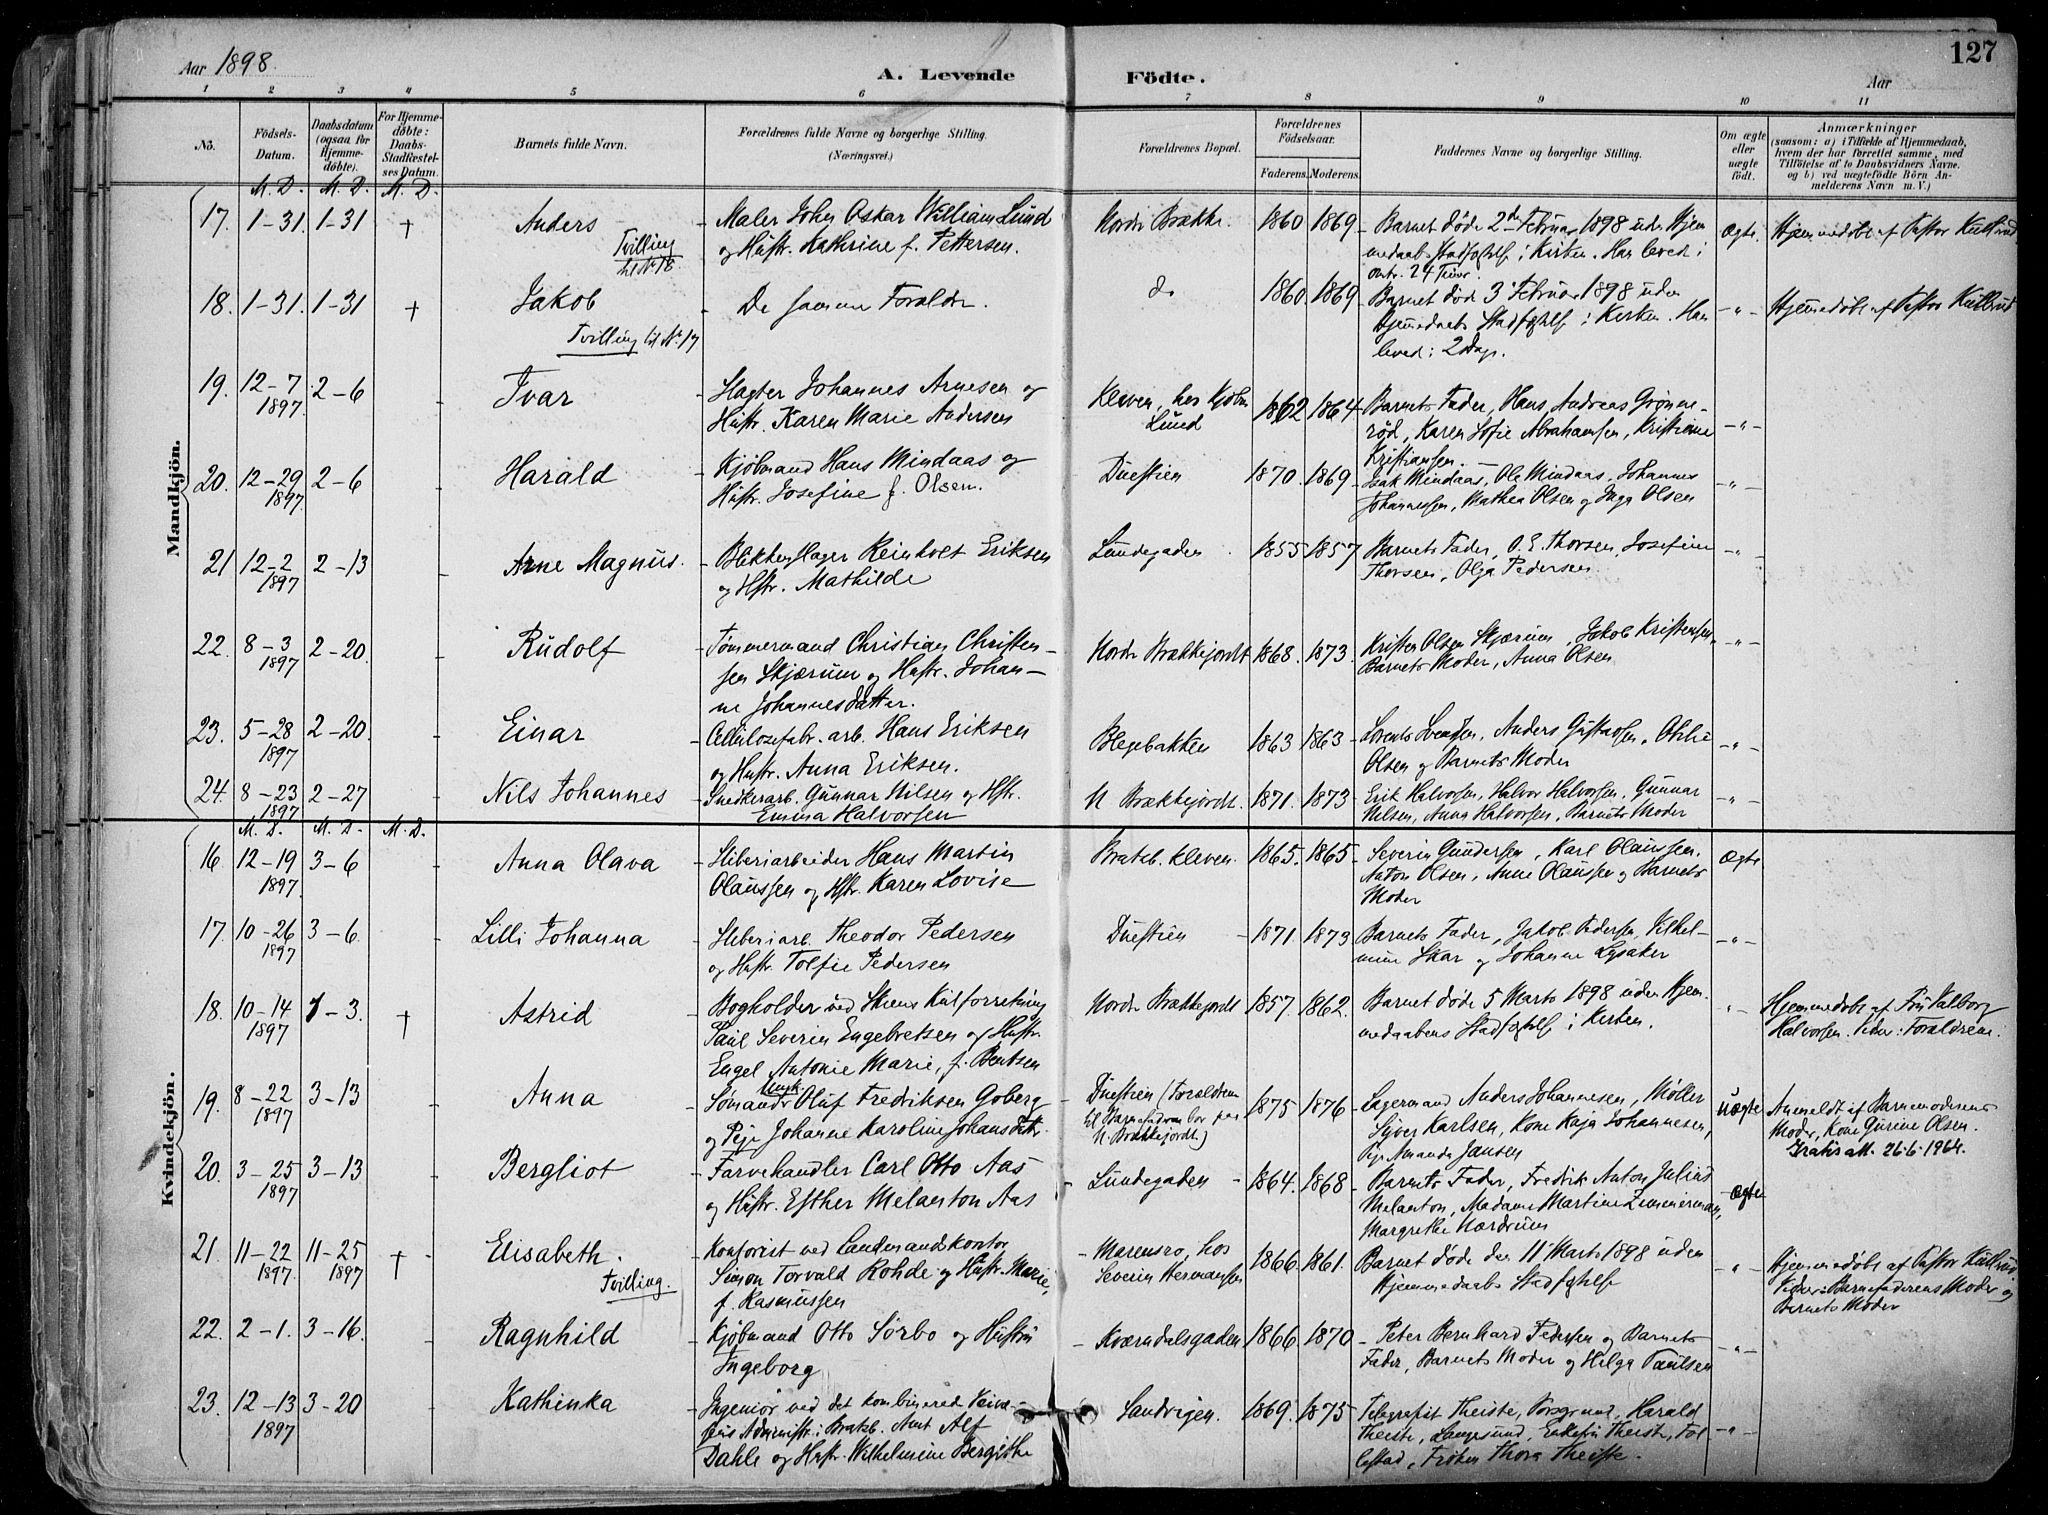 127
Aar 1898.
A. Levende Födte.
Aar
1 2 3 4 5 6 7 8 9 10 11
No.
Födsels-Datum.
Daabsdatum (ogsaa for Hjemmedøbte).
For Hjemmedøbte: Daabs-Stadfæstelses Datum.
Barnets fulde Navn.
Forældrenes fulde Navne og borgerlige Stilling.
(Næringsvei.)
Forældrenes Bopæl.
Forældrenes Födselsaar.
Faderens. Moderens.
Faddernes Navne og borgerlige Stilling.
Om ægte eller uægte födt.
Anmærkninger
(saasom: a) i Tilfælde af Hjemmedaab, hvem der har forrettet samme, med Tilföielse af to Daabsvidners Navne. og b) ved uægtefödte Börn Anmelderens Navn m. V.)
M. D. M. D. M. D.
Mandkjön.
17. 1-31 1-31 + Anders - Maler Johan Oskar William Lund Nordre Brække. 1860 1869 - Barnet døde 2den Februar 1898 uden Hjem Ægte. Hjemmedøbt af Pastor
Tvilling til Nr 18. og Hustr. Kathrine f. Pettersen. medaabs Stadfæstelse i Kirken. Han leved i
omtr. 24 Timer.
18. 1-31. 1-31 + Jakob - De samme Forældre. do 1860. 1869 - Barnet død 3 Februar 1898 uden -"- Hjemmedøbt af Pastor
Tvilling til Nr 17 Hjemmedaabs Stadfæstelse i Kirken. Han
leved i 2 Dage.
19. 12-7 1897 2-6 - Ivar - Slagter Johannes Arnesen og Kleven, hos Kjøbm. Lund 1862 1864 - Barnets Fader, Hans Andreas Grønne-
Hustr. Karen Marie Andersen rød, Karen Sofie Abrahamsen, Kristiane -"-
Kristiansen
20. 12-29 1897 2-6 - Harald - Kjøbmand Hans Mindaas og Duestien 1870. 1869 - Isak Mindaas, Ole Mindaas, Johannes -"-
Hustr. Josefine f. Olsen. Johannessen, Mathea Olsen og Inga Olsen
21 12-2 1897 2-13 - Arne Magnus. - Blikkenslager Reinholt Eriksen Lundegaden 1855 1857 - Barnets Fader, O. E. Thorsen, Josefine -"-
og Hstr. Mathilde Thorsen, Olga Pedersen
22. 8-3 1897 2-20. - Rudolf - Tømmermand Christian Christen- Nordr Brækkejordet 1868. 1873. Kristen Olsen Skjærum, Jakob Kristensen, -"-
sen Skjærum og Hustr. Johan- Barnets Moder, Anna Olsen
ne Johannesdatter.
23. 5-28 1897 2-20. - Einar - Cellulosefabr. arb. Hans Eriksen Blegebakken 1863 1863 - Lorents Svendsen, Anders Gustavsen, Othlie -"-
og Hustr. Anna Eriksen. Olsen og Barnets Moder
24. 8-23 1897 2-27 - Nils Johannes - Snedkerarb. Gunnar Nilsen og Hstr. N Brækkejordt. 1871. 1873 - Erik Halvorsen, Halvor Halvorsen, Gunnar -"-
Emma Halvorsen Nilsen, Anna Halvorsen, Barnets Moder
Kvindekjön.
M. D. M. D. M. D.
16. 12-19 1897. 3-6 - Anna Olava - Sliberiarbeider Hans Martin Bratsb. kleven. 1865. 1865 - Severin Gundersen, Karl Olaussen. Ægte
Olaussen og Hstr. Karen Lovise Anton Olsen, Anne Olaussen og Barnets
Moder
17. 10-26 1897 3-6. - Lilli Johanna - Sliberiarb. Theodor Pedersen Duestien - 1871. 1873 Barnets Fader, Jakob Pedersen, Vilhel- -"-
og Hustr. Tolfie Pedersen mine Skar og Johanne Lysaker
18. 10-14 1897 1-3. + Astrid - Bogholder ved Skiens Kulforretning Nordr Brækkejordt 1857. 1862. Barnet døde 5 Marts 1898 uden Hjem- "- Hjemmedøbt af Fru Valborg
Paul Severin Engebretsen og Hustr. medaabens Stadfæstelse i Kirken. Halvorsen. Vidner: Forældrene.
Engel Antonie Marie, f. Bentsen
19. 8-22 1897 3-13 - Anna - Sømand Ungk. Oluf Fredriksen Goberg Duestien (Forældrene 1875 1876 - Lagermand Anders Johannesen, Møller Uægte Anmeldt af Barnemoderens
og Pige Johanne Karoline Johansdatr. til Barnefaderen bor paa Syver Karlsen, Kone Kaja Johannesen, Moder, Kone Gurine Olsen.
N. Brækkejordt.) Pige Amanda Jansen Gratis att. 26.6.1964.
20. 3-25 1897 3-13. - Bergliot - Farvehandler Carl Otto Aas - Lundegaden - 1864. 1868 - Barnets Fader, Fredrik Anton Julius - Ægte
og Hustr. Esther Melanton Aas Melanton, Madame Martine Zimmerman,
Margrethe Nordrum
21. 11-22 1897. 11-25 1897 + Elisabeth. - Kontorist ved Landmandskontor - Marensro, hos 1866. 1861. Barnet døde den 11 Marts 1898 uden -"- Hjemmedøbt af Pastor
Tvilling. Simon Torvald Rohde og Hustr. Marie, Severin Hermansen Hjemmedaabs Stadfæstelse Vidner: Barnefaderens Moder og
f. Rasmussen Barnets Moder
22. 2-1. 3-16. - Ragnhild - Kjøbmand Otto Sørbø og Hustru - Kværndalsgaden 1866. 1870 - Peter Bernhard Pedersen og Barnets -"-
Ingeborg Fader, Barnets Moder og Helga Paulsen
23. 12-13 1897 3-20 - Kathinka - Ingeniør ved det kombinered Veivæ- Sandvigen. 1869. 1875 Telegrafist Theiste, Porsgrund, Harald
sens Administr. i Bratsb. Amt Alf Theiste, Langesund, Enkefru Theiste, Tol- -"-
Dahle og Hustr. Wilhelmine Bergithe lestad, Frøken Thora Theiste.